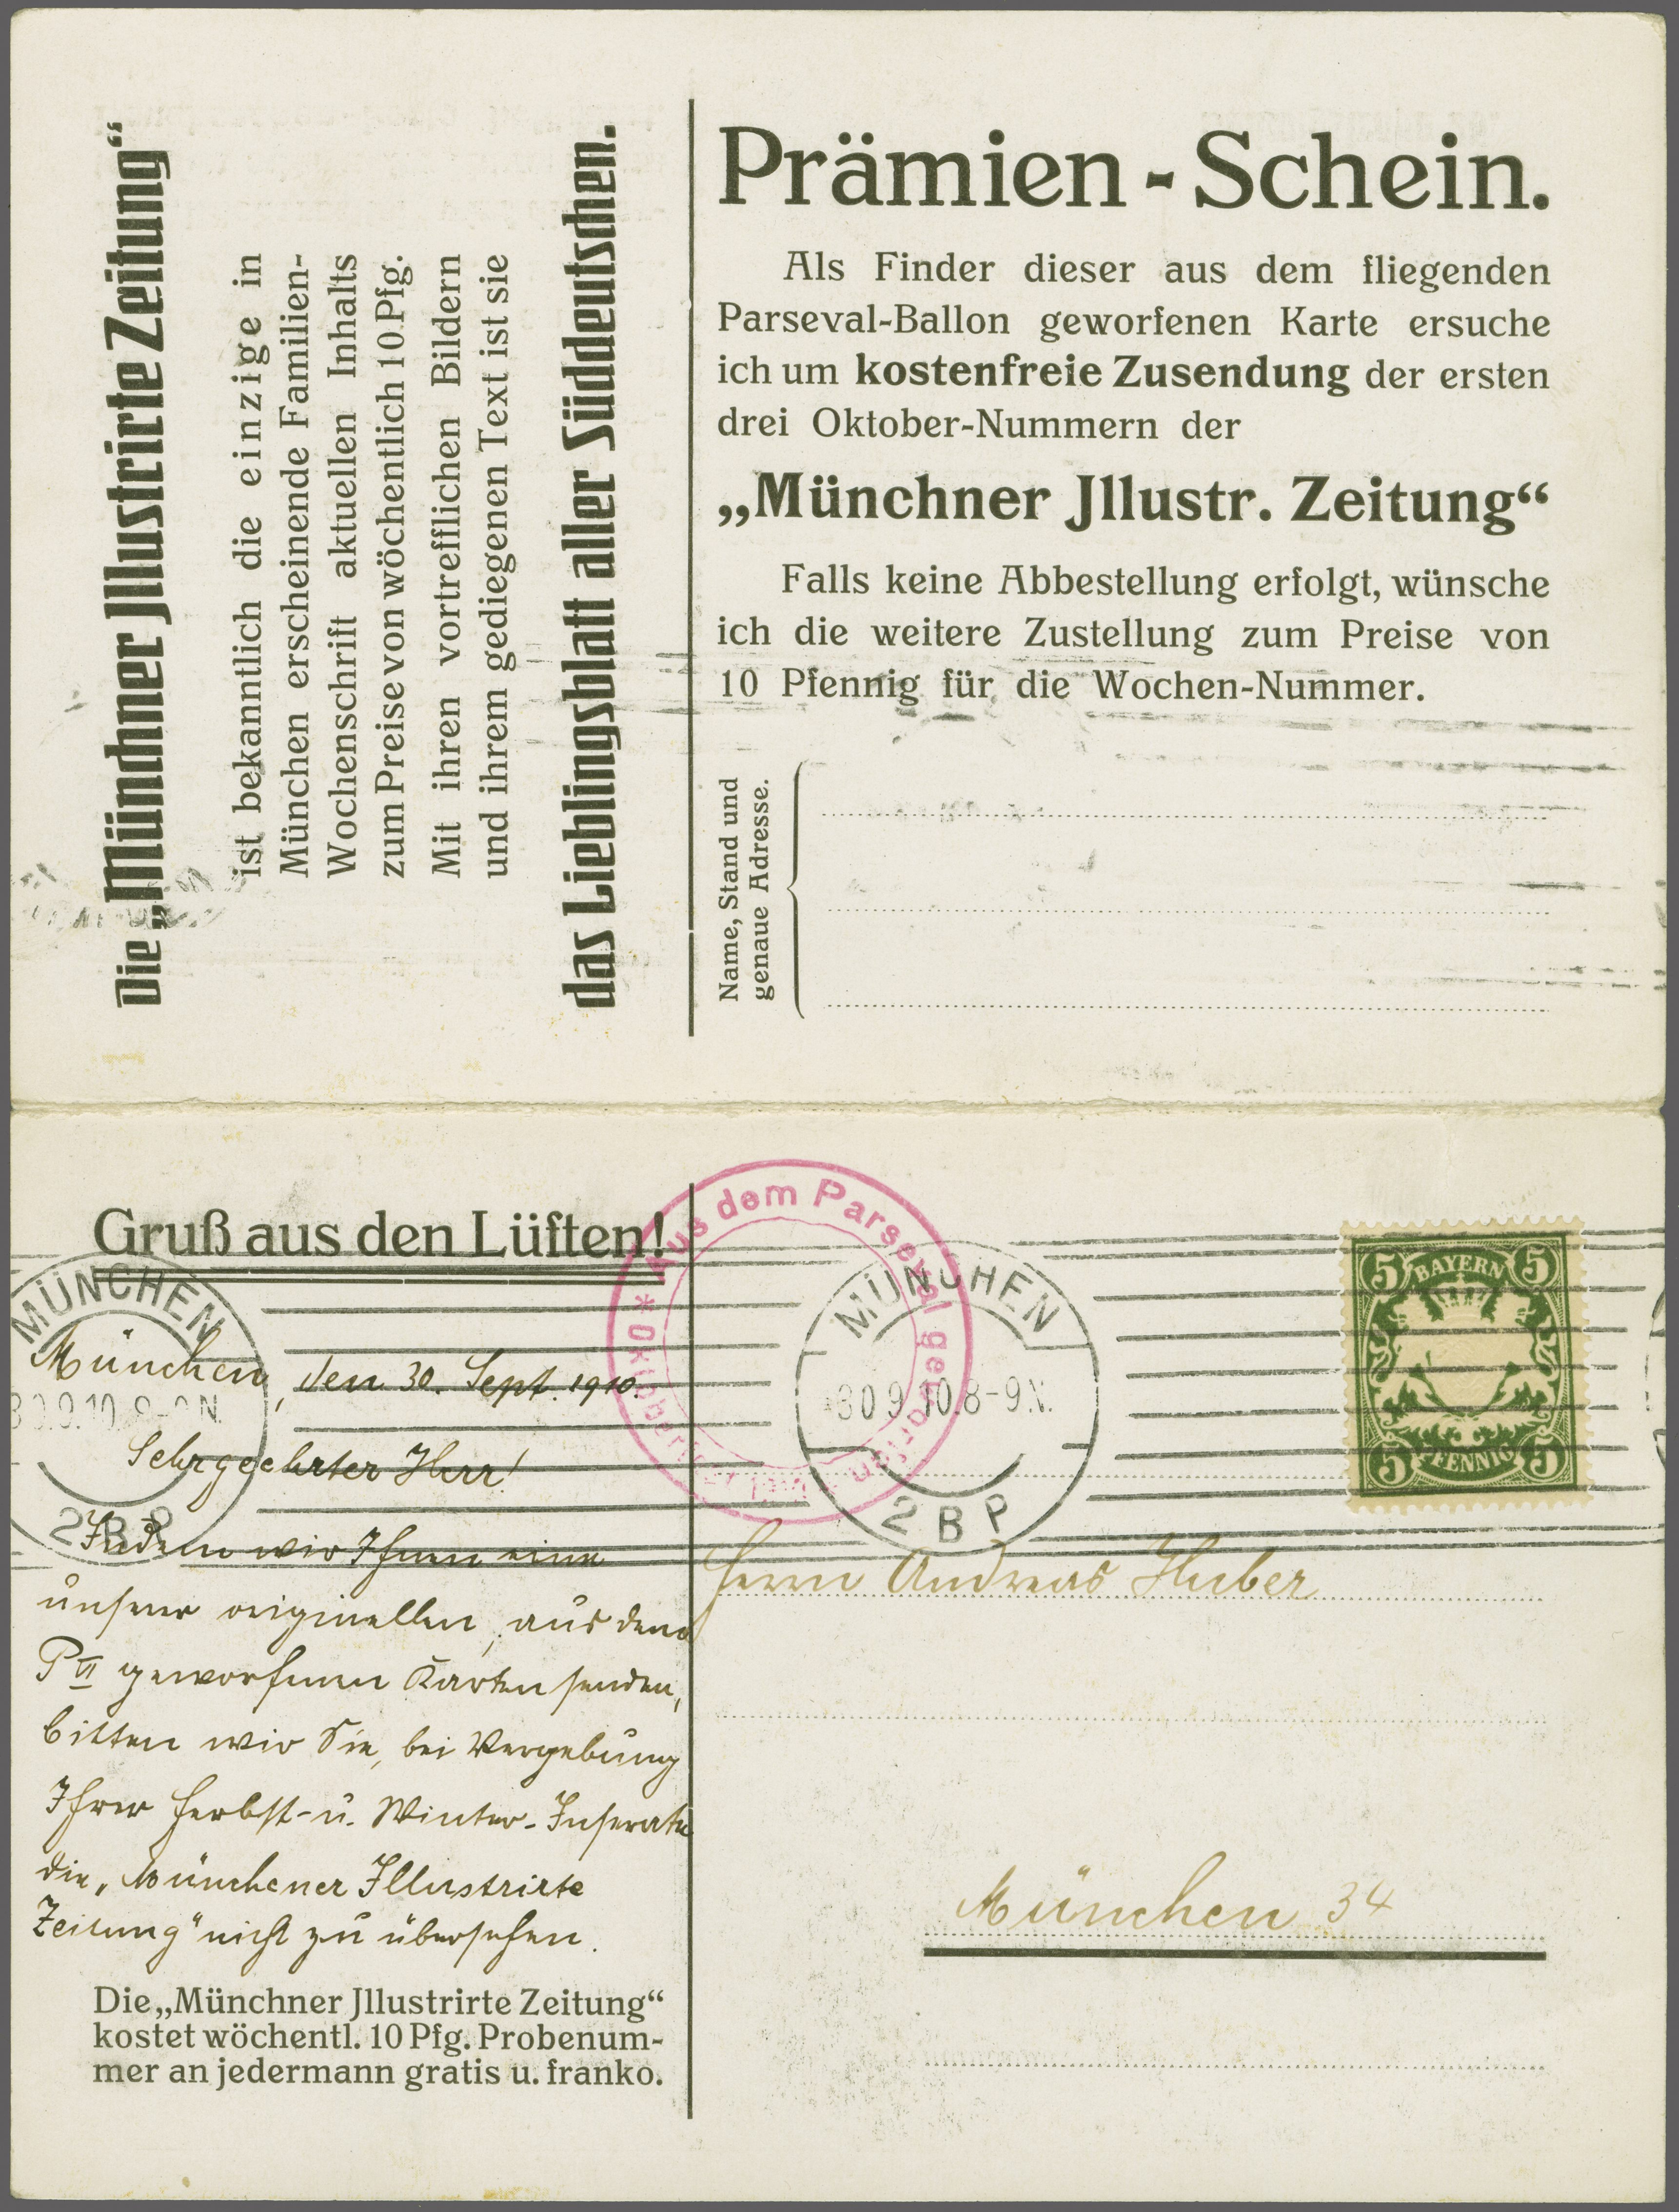 Die „Münchner Jllustrirte Zeitung“
ist bekanntlich die einzige in
München erscheinende Familien-
Wochenschrift aktuellen Inhalts
zum Preise von wöchentlich 10 Pfg.
Mit ihren vortrefflichen Bildern
und ihrem gediegenen Text ist sie
das Lieblingsblatt aller Süddeutschen.
Prämien-Schein.
Als Finder dieser aus dem fliegenden
Parseval-Ballon geworfenen Karte ersuche
ich um kostenfreie Zusendung der ersten
drei Oktober-Nummern der
„Münchner Jllustr. Zeitung“
Falls keine Abbestellung erfolgt, wünsche
ich die weitere Zustellung zum Preise von
10 Pfennig für die Wochen-Nummer.
Name, Stand und
genaue Adresse.
Gruß aus den Lüften!
MÜNCHEN
30.9.10 8-9 N.
2 B P
München, den 30. Sept. 1910.
Sehrgeehrter Herr!
Indem wir Ihnen eine
unserer originellen, aus dem
P VI geworfenen Karten senden,
bitten wir Sie, bei Vergebung
Ihrer Herbst- u. Winter-Inserate
die „Münchener Illustrirte
Zeitung“ nicht zu übersehen.
Die „Münchner Jllustrirte Zeitung“
kostet wöchentl. 10 Pfg. Probenum-
mer an jedermann gratis u. franko.
Aus dem Parseval geworfen
* Oktoberfest
MÜNCHEN
30.9.10.8-9 N.
2 B P
5 BAYERN 5
5 PFENNIG 5
Herrn Andreas Huber
München 34